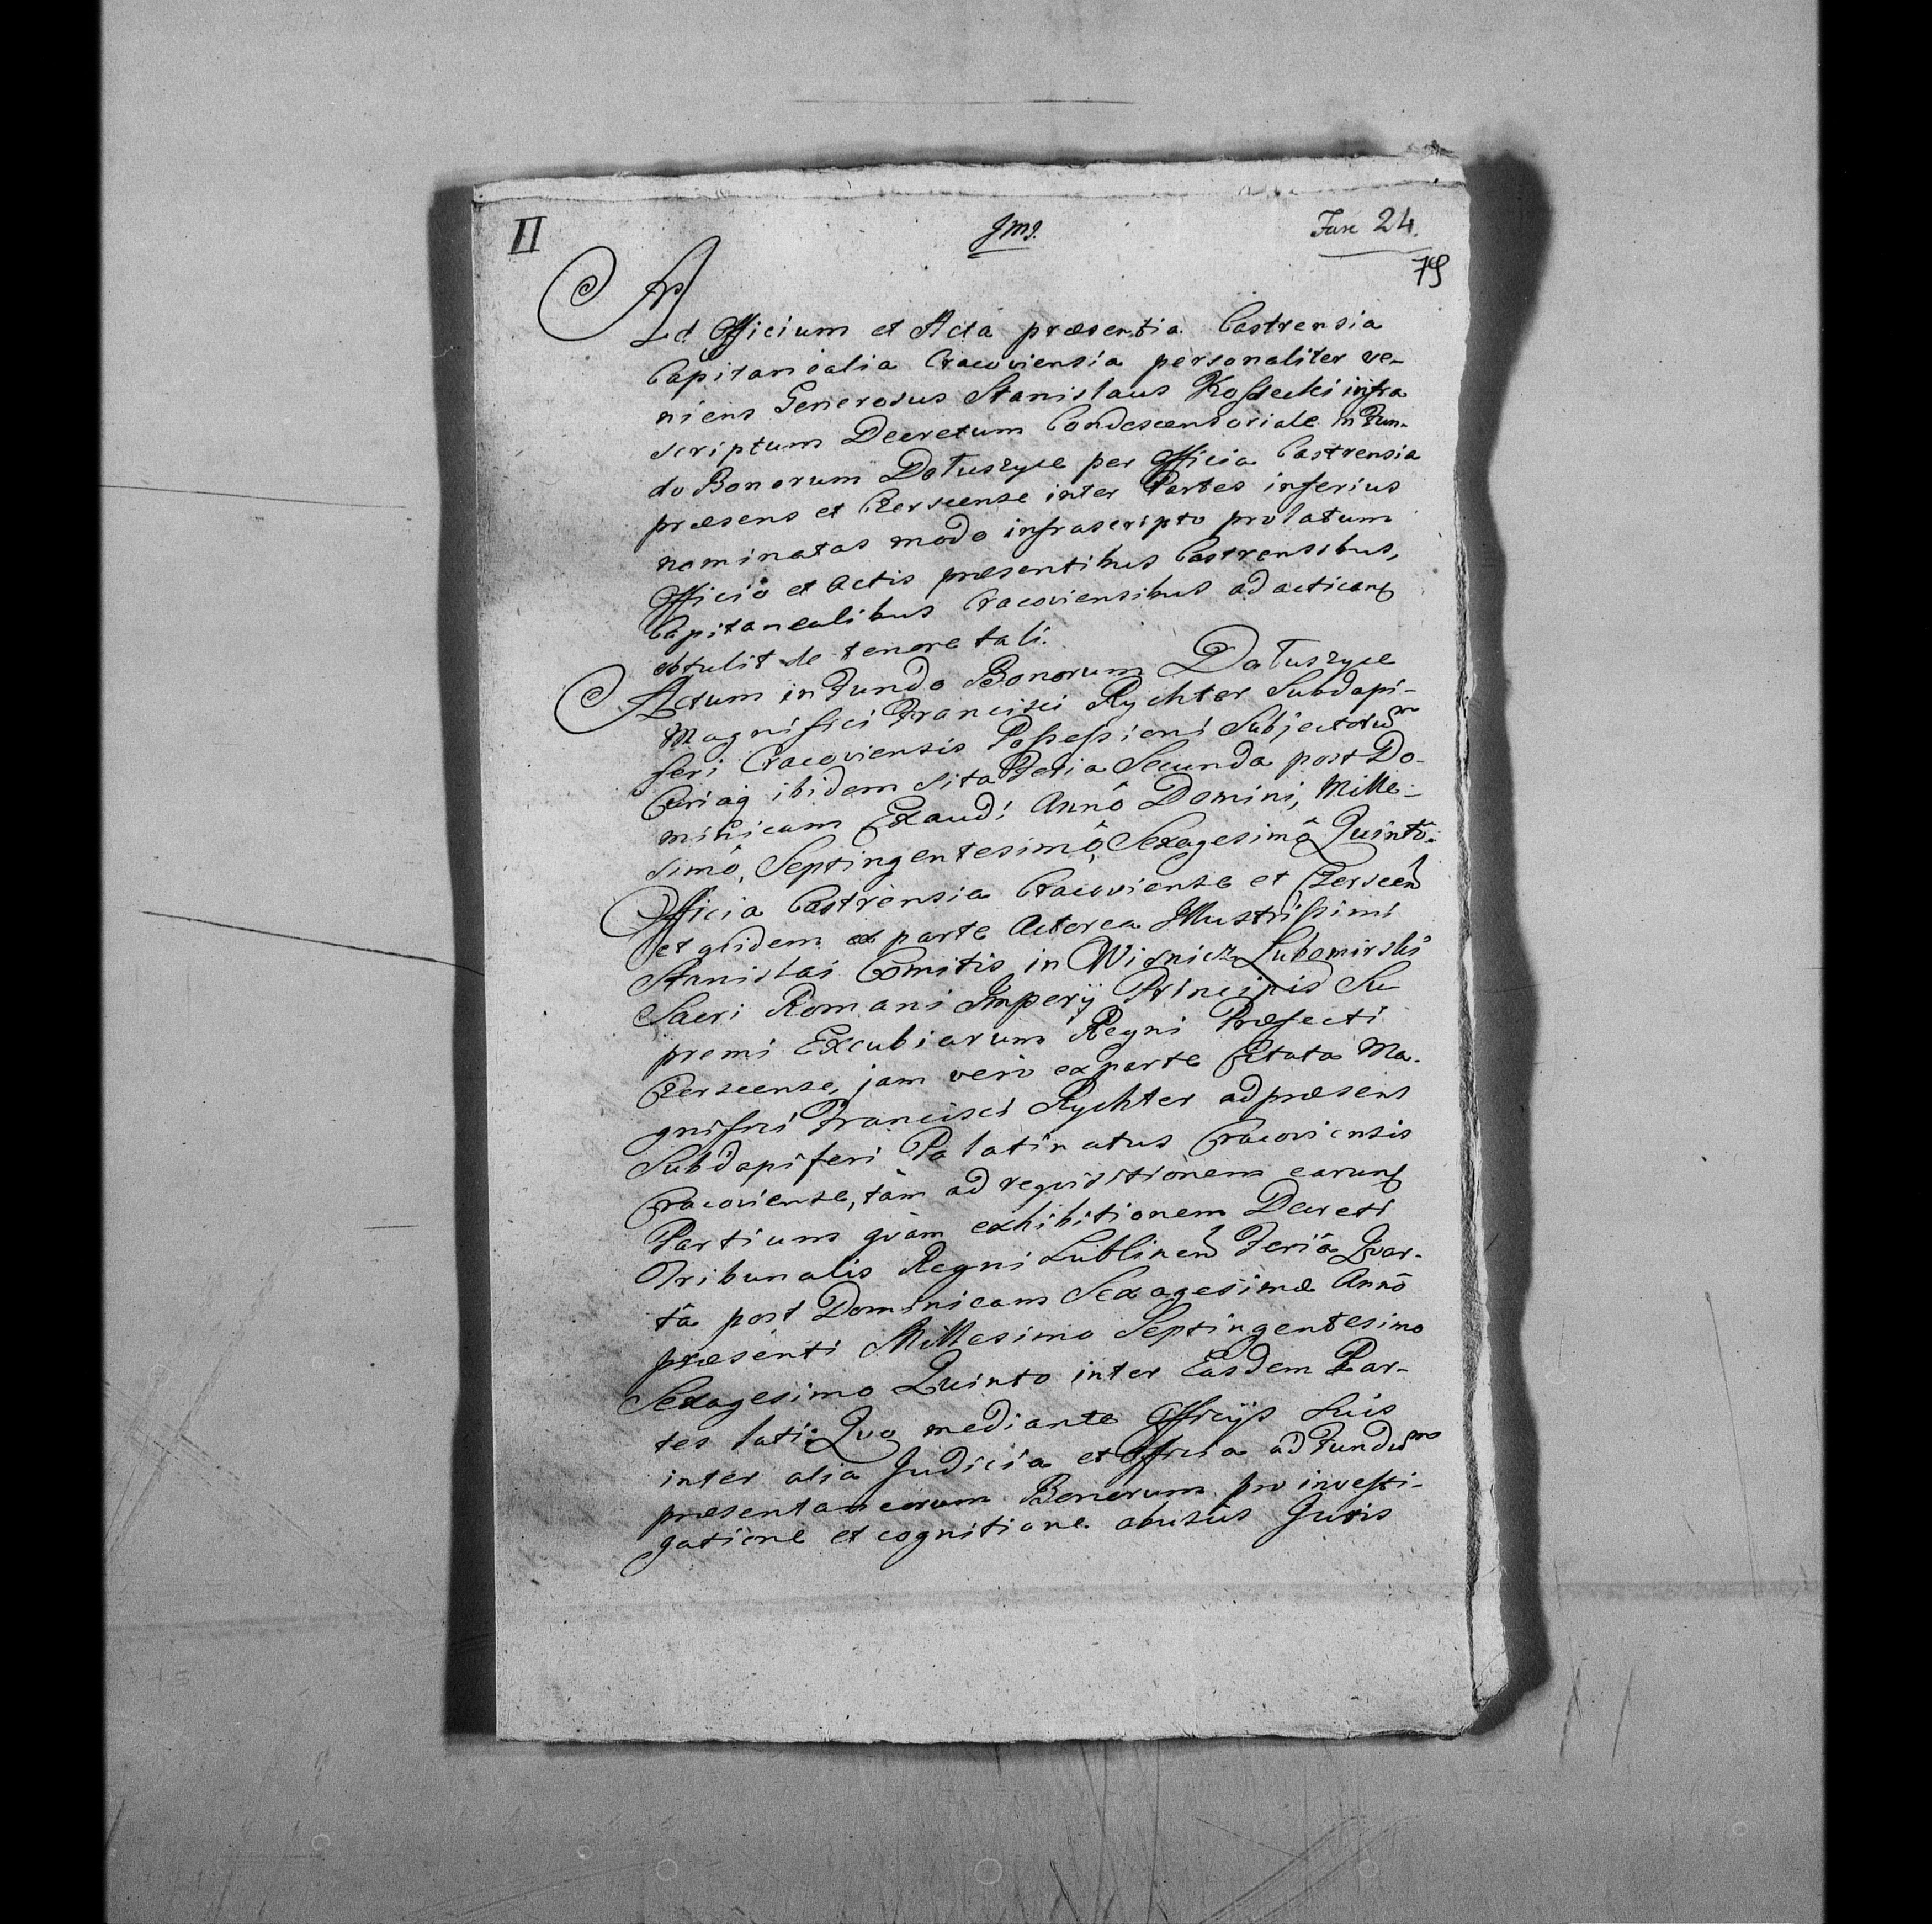 II
JMJ.
Fasc 24.
79
Ad Officium et Acta præsentia Castrensia
Capitanealia Cracoviensia personaliter ve-
niens Generosus Stanislaus Kossecki infra
scriptum Decretum Condescensoriale in Fun-
do Bonorum Dołuszyce per Officia Castrensia
præsens et Czerscense inter Partes inferius
nominatas modo infrascripto prolatum
Officiô et Actis præsentibus Castrensibus,
Capitanealibus Cracoviensibus ad acticand
obtulit de tenore tali.
Actum in Fundo Bonorum Dołuszyce
Magnifici Francisci Rychter Subdapi-
feri Cracoviensis Possessioni Subjectorum
Curiaq ibidem sita Feria Secunda post Do-
minicam Exaudi Annô Domini, Mille-
simô, Septingentesimô, Sexagesimô Quintô.
Officia Castrensia Cracoviense et Czerscen
et qŭidem ex parte Actorea Illustrissimi
Stanislai Comitis in Wisnicz Lubomirski
Sacri Romani Imperÿ Principis Su
premi Excubiarum Regni Præfecti
Czerscense, jam verò ex parte Citata Ma-
gnifici Francisci Rychter ad præsens
Subdapiferi Palatinatus Cracoviensis
Cracoviense, tàm ad reqvisitionem earund
Partium qvàm exhibitionem Decreti
Tribunalis Regni Lublinen Feriâ Qvar-
tâ post Dominicam Sexagesimæ Annô
præsenti Millesimo Septingentesimo
Sexagesimo Quinto inter Easdem Par-
tes lati. Qvo mediante Officÿs suis
inter alia Judicia et Officia ad Fundum
præsentaneorum Bonorum pro investi-
gatione et cognitione abusûs Juris